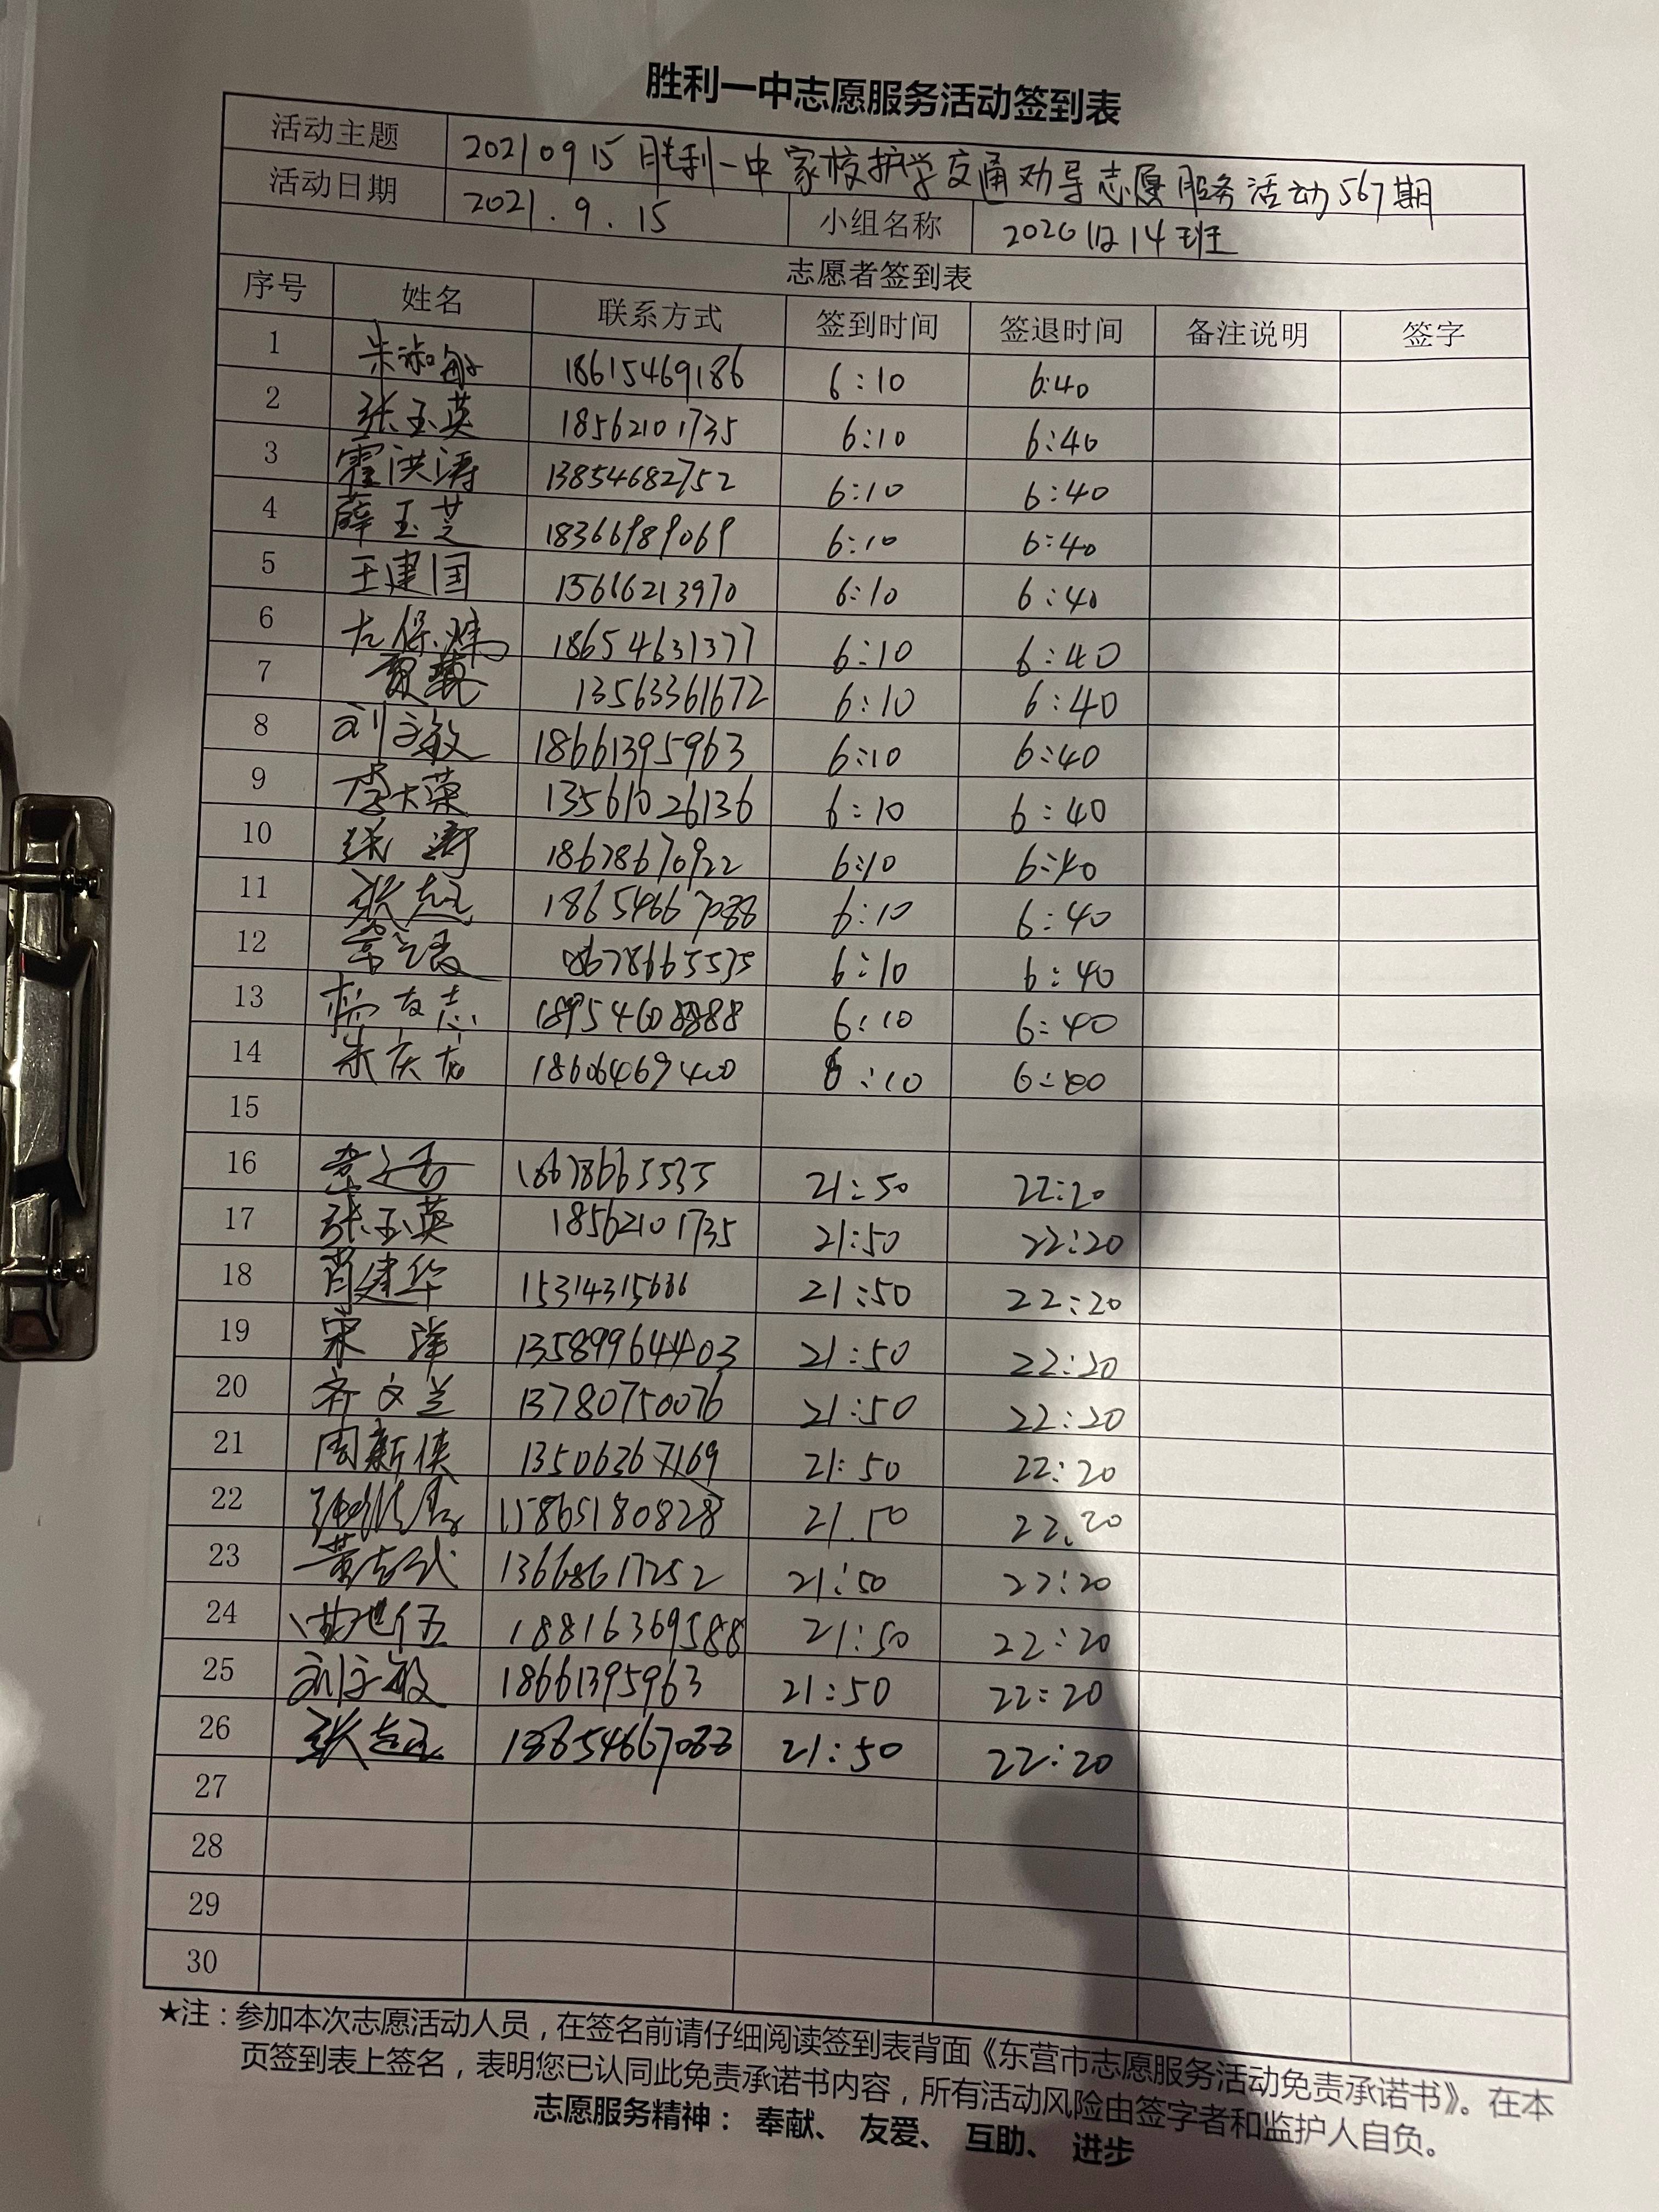 胜利一中志愿服务活动签到表
活动主题 20210915胜利一中家校护学交通劝导志愿服务活动567期
活动日期 2021.9.15 小组名称 2020级14班
志愿者签到表
序号 姓名 联系方式 签到时间 签退时间 备注说明 签字
1 朱淑敏 18615469186 6:10 6:40
2 张玉英 18562101735 6:10 6:40
3 霍洪涛 13854682752 6:10 6:40
4 薛玉芝 18366989069 6:10 6:40
5 王建国 15616213970 6:10 6:40
6 18654631377 6:10 6:40
7 13563361672 6:10 6:40
8 刘文敏 18661395963 6:10 6:40
9 李大荣 13561026136 6:10 6:40
10 张涛 18678670922 6:10 6:40
11 张志玉 18654667088 6:10 6:40
12 6:10 6:40
13 杨友志 18954608888 6:10 6:40
14 朱庆龙 18606469400 6:10 6:40
15
16 18678665535 21:50 22:20
17 张玉英 18562101735 21:50 22:20
18 肖建华 15314315666 21:50 22:20
19 宋洋 13589964403 21:50 22:20
20 齐文兰 13780750076 21:50 22:20
21 周新侠 13506367169 21:50 22:20
22 15865180828 21.50 22.20
23 黄志武 13668617252 21:50 22:20
24 18816369588 21:50 22:20
25 刘文敏 18661395963 21:50 22:20
26 张志玉 18654667088 21:50 22:20
27
28
29
30
★注：参加本次志愿活动人员，在签名前请仔细阅读签到表背面《东营市志愿服务活动免责承诺书》。在本
页签到表上签名，表明您已认同此免责承诺书内容，所有活动风险由签字者和监护人自负。
志愿服务精神： 奉献、 友爱、 互助、 进步